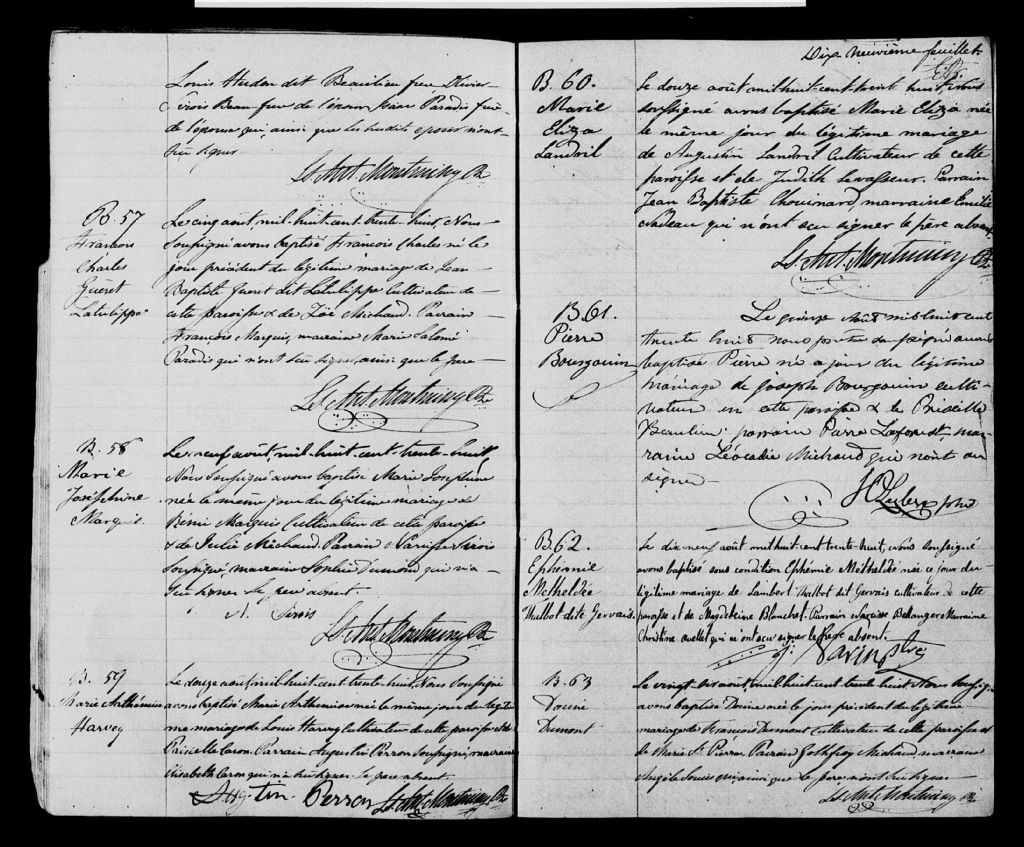 Louis Hudon dit Beaulieu
Sirois Beau-frère de l'époux, Paradis
de l'épouse qui, ainsi que les susdits époux n'ont
su signer
Ls. Ant. Montminy Ptr
B. 57
François
Charles
Gueret
Latulippe
Le cinq août, mil-huit-cent-trente-huit, Nous
Soussigné avons baptisé François Charles né le
jour précédent du légitime mariage de Jean
Baptiste Gueret dit Latulippe Cultivateur de
cette paroisse & de Zoë Michaud. Parrain
François Marquis, marraine Marie Salomé
Paradis qui n'ont su signer, ainsi que le père
Ls. Ant. Montminy Ptr
B. 58
Marie
Joséphine
Marquis
Le neuf août, mil-huit-cent-trente-huit
Nous Soussigné avons baptisé Marie Joséphine
née le même jour du légitime mariage de
Rémi Marquis Cultivateur de cette paroisse
& de Julie Michaud. Parrain Narcisse Sirois
Soussigné, marraine Sophie Dumond qui n'a
su signer le père absent.
N. Sirois
Ls. Ant. Montminy Ptr
B. 59
Marie Arthémise
Harvey
Le douze août, mil-huit-cent-trente-huit, Nous Soussigné
avons baptisé Marie Arthémise née le même jour du légiti
me mariage de Louis Harvey Cultivateur de cette paroisse & de
Priscille Caron. Parrain Augustin Perron Soussigné, marraine
Elisabeth Caron qui n'a su signer le père absent.
Augtin Perron Ls. Ant. Montminy Ptr
Dix neuvième feuillet
B. 60.
Marie
Eliza
Landril
Le douze août mil huit-cent-trent huit, Nous
soussigné avons baptisé Marie Eliza née
le même jour du légitime mariage
de Augustin Landril Cultivateur de cette
paroisse et de Judith Levasseur. Parrain
Jean Baptiste Chouinard, marraine Emilie
Nadeau qui n'ont seu signer le père absent
Ls. Ant. Montminy Ptr
B. 61.
Pierre
Bourgouin
Le quinze Août mil huit cent
trente huit nous prêtre soussigné avons
baptisé Pierre né ce jour du légitime
mariage de Joseph Bourgouin culti-
vateur en cette paroisse & de Priscille
Beaulieu: parrain Pierre Laforest mar-
raine Léocadie Michaud qui n'ont su
signer
Leclerc ptre
B. 62.
Ephémie
Metheldée
Thalbot dite Gervais.
Le dix neuf août mil huit-cent trente huit, Nous soussigné
avons baptisé sous condition Ephémie Métheldée née ce jour du
légitime mariage de Lambert Thalbot dit Gervais cultivateur de cette
paroisse et de Magdeleine Blanchet. Parrain Narcisse Bellanger Marraine
Christine Ouellet qui n'ont seu signer le Père absent.
J. Varin Ptre
B. 63
Dosité
Dumont
Le vingt août, mil huit-cent trente huit Nous Soussigné
avons baptisé né le jour précédent du légitime
mariage de François Dumont Cultivateur de cette paroisse et
de Marie St Pierre. Parrain Godfroy Michaud, marraine
Angèle Louis ainsi que le père n'ont su signer
Ls. Ant. Montminy Ptr